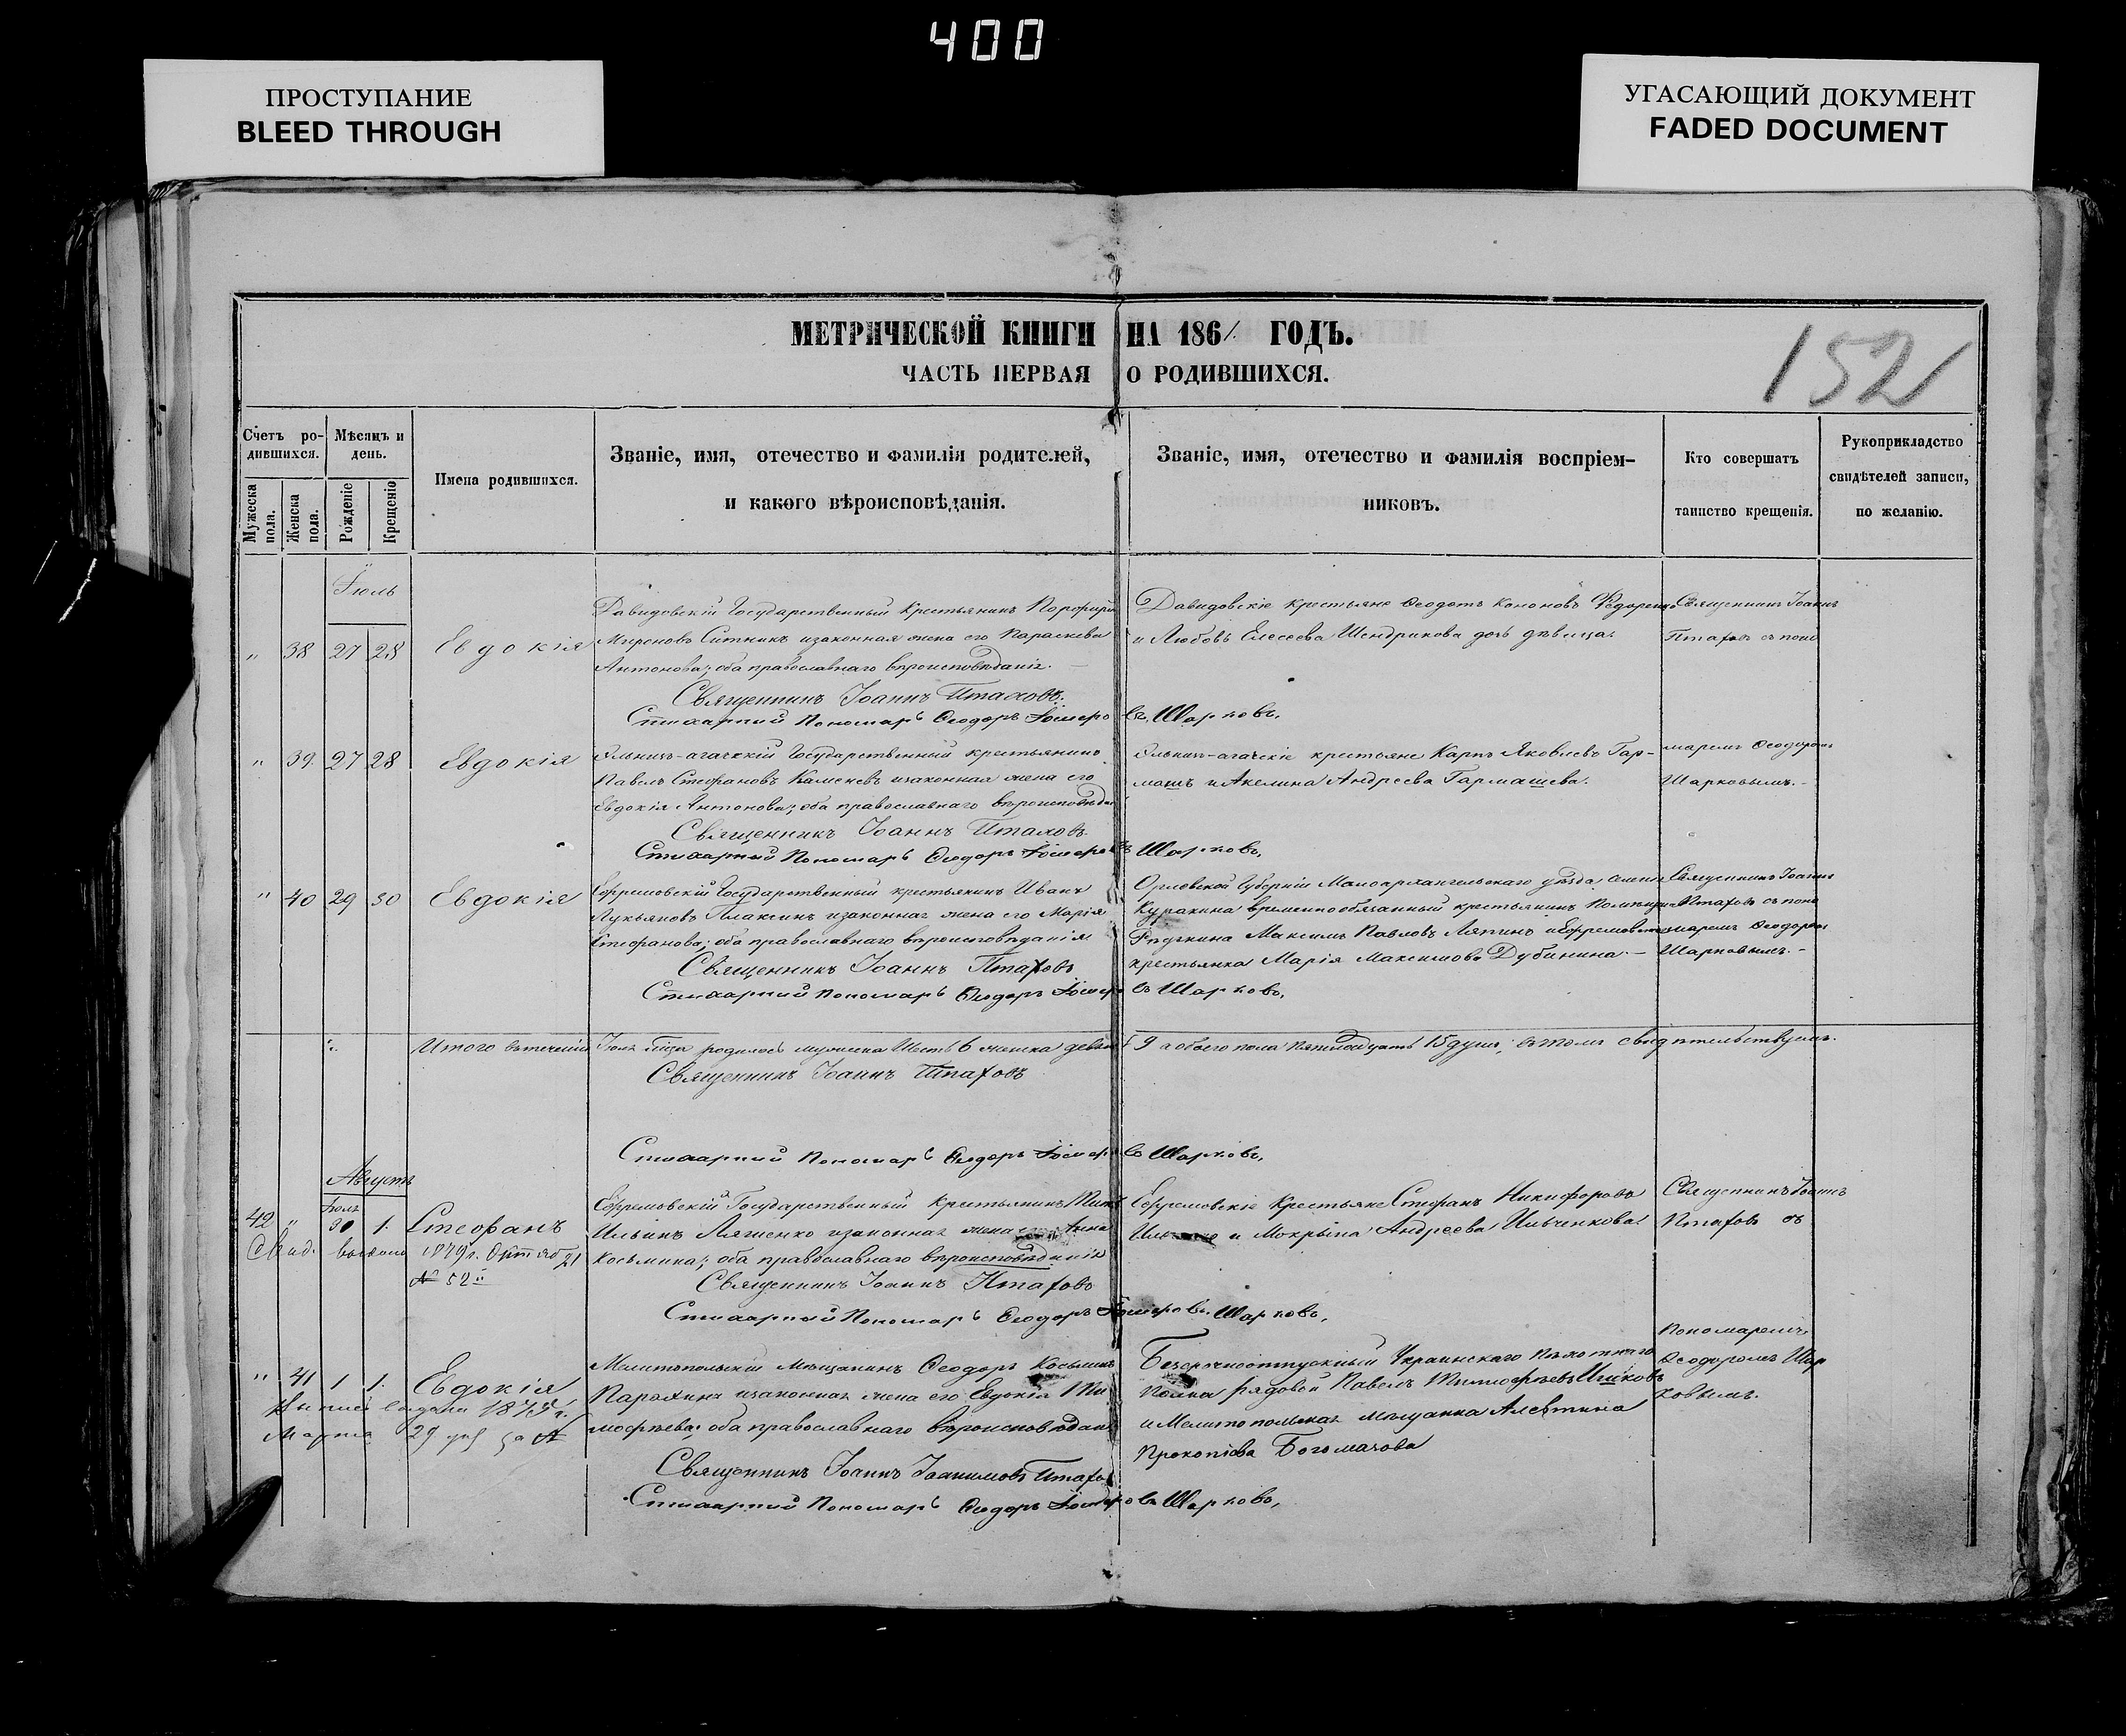 400
ПРОСТУПАНИЕ
BLEED THROUGH
УГАСАЮЩИЙ ДОКУМЕНТ
FADED DOCUMENT
МЕТРИЧЕСКОЙ КНИГИ НА 1861 ГОДЪ.
ЧАСТЬ ПЕРВАЯ О РОДИВШИХСЯ.
152
Счетъ ро-
дившихся.
Мѣсяцъ и
день.
Мужеска пола.
Женска пола.
Рожденіе
Крещеніе
Имена родившихся.
Званіе, имя, отечество и фамилія родителей,
и какого вѣроисповѣданія.
Званіе, имя, отечество и фамилія воспріем-
никовъ.
Кто совершатъ
таинство крещенія.
Рукоприкладство
свидѣтелей записи,
по желанію.
Іюль
" 38 27 28 Евдокія
Давидовскій Государственный Крестьянинъ Порфирій
Мироновъ Ситникъ изаконная жена его Параскева
Антонова; оба православнаго вѣроисповѣданія. —
Священникъ Іоаннъ Птаховъ.
Стихарный Пономарь Ѳеодоръ
Шарковъ,
Давидовскіе крестьяне Ѳеодотъ Кононовъ Федоренко
и Любовь Елесеева Шендрикова дочь дѣвица.
Священникъ Іоаннъ
Птаховъ съ поно
" 39. 27 28 Евдокія
Государственный крестьянинъ
Павелъ Стефановъ Каменевъ изаконная жена его
Евдокія Антонова; оба православнаго вѣроисповѣда
Священникъ Іоаннъ Птаховъ
Стихарный Пономарь Ѳеодоръ
Шарковъ,
крестьяне Карпъ Яковлевъ Гар-
машъ и Акелина Андреева Гармашева.
маремъ Ѳеодоромъ
Шарковымъ. —
" 40 29 30 Евдокія
Ефремовскій Государственный крестьянинъ Иванъ
Лукьяновъ Плаксинъ изаконная жена его Марія
Стефанова; оба православнаго вѣроисповѣданія
Священникъ Іоаннъ Птаховъ
Стихарний Пономарь Ѳеодоръ
Шарковъ,
Орловской Губерніи Малоархангельскаго уѣзда
Куракина временнообязанный крестьянинъ
Максимъ Павловъ Ляпинъ
крестьянка Марія Максимова Дубинина. —
Священникъ Іоаннъ
Птаховъ съ поно
маремъ Ѳеодоромъ
Шарковымъ. —
Итого втеченіи Іюлѣ м̃ца родилось мужеска Шесть 6 женска девять 9 а обоего пола пятнадцать 15 душъ, втомъ свидѣтельствуемъ.
Священникъ Іоаннъ Птаховъ
Стихарний Пономарь Ѳеодоръ
Шарковъ,
Августъ
Іюль
42 " 30 1. Стефанъ
Свид. 1879 г. Октяб 21
№ 52
Ефремовскій Государственный Крестьянинъ
Ильинъ Ляшенко изаконная жена его Анна
Косьмина; оба православнаго вѣроисповѣданія
Священникъ Іоаннъ Птаховъ
Стихарный Пономарь Ѳеодоръ
Шарковъ,
Ефремовскіе Крестьяне Стефанъ Никифоровъ
и Мокрына Андреева Ильченкова
Священникъ Іоаннъ
Птаховъ съ
Пономаремъ
Ѳеодоромъ Шар
ковымъ.
" 41 1 1. Евдокія
Марта 29
Мелитопольскій Мѣщанинъ Ѳеодоръ Косьминъ
изаконная жена его Евдокія Ти
мофѣева; оба православнаго вѣроисповѣдан
Священникъ Іоаннъ Іоакимовъ Птахов
Стихарний Пономарь Ѳеодоръ
Шарковъ,
Безсрочноотпускный Украинскаго пѣхотнаго
полка рядовой Павелъ Тимофѣевъ
и Мелитопольская мѣщанка Алевтина
Прокопіева Богомазова